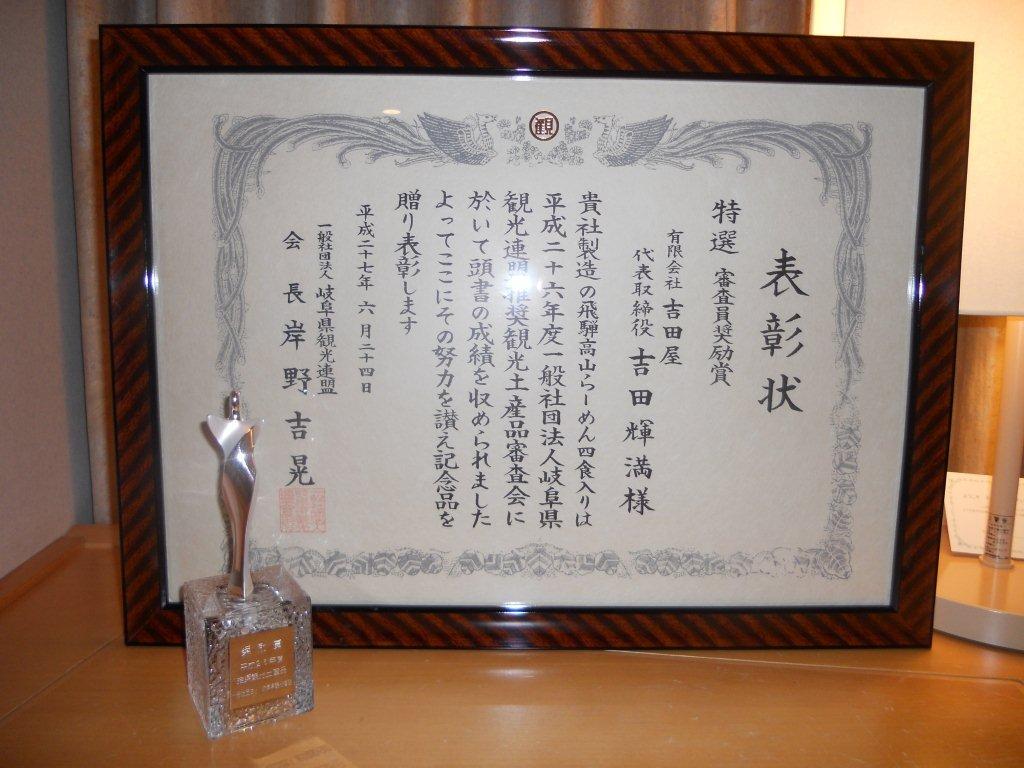 観
表彰状
特選 審査員奨励賞
有限会社 吉田屋
代表取締役 吉田輝満様
貴社製造の飛騨高山らーめん四食入りは
平成二十六年度一般社団法人岐阜県
観光連盟推奨観光土産品審査会に
於いて頭書の成績を収められました
よってここにその努力を讃え記念品を
贈り表彰します
平成二十七年六月二十四日
一般社団法人 岐阜県観光連盟
会長 岸野吉晃
奨励賞